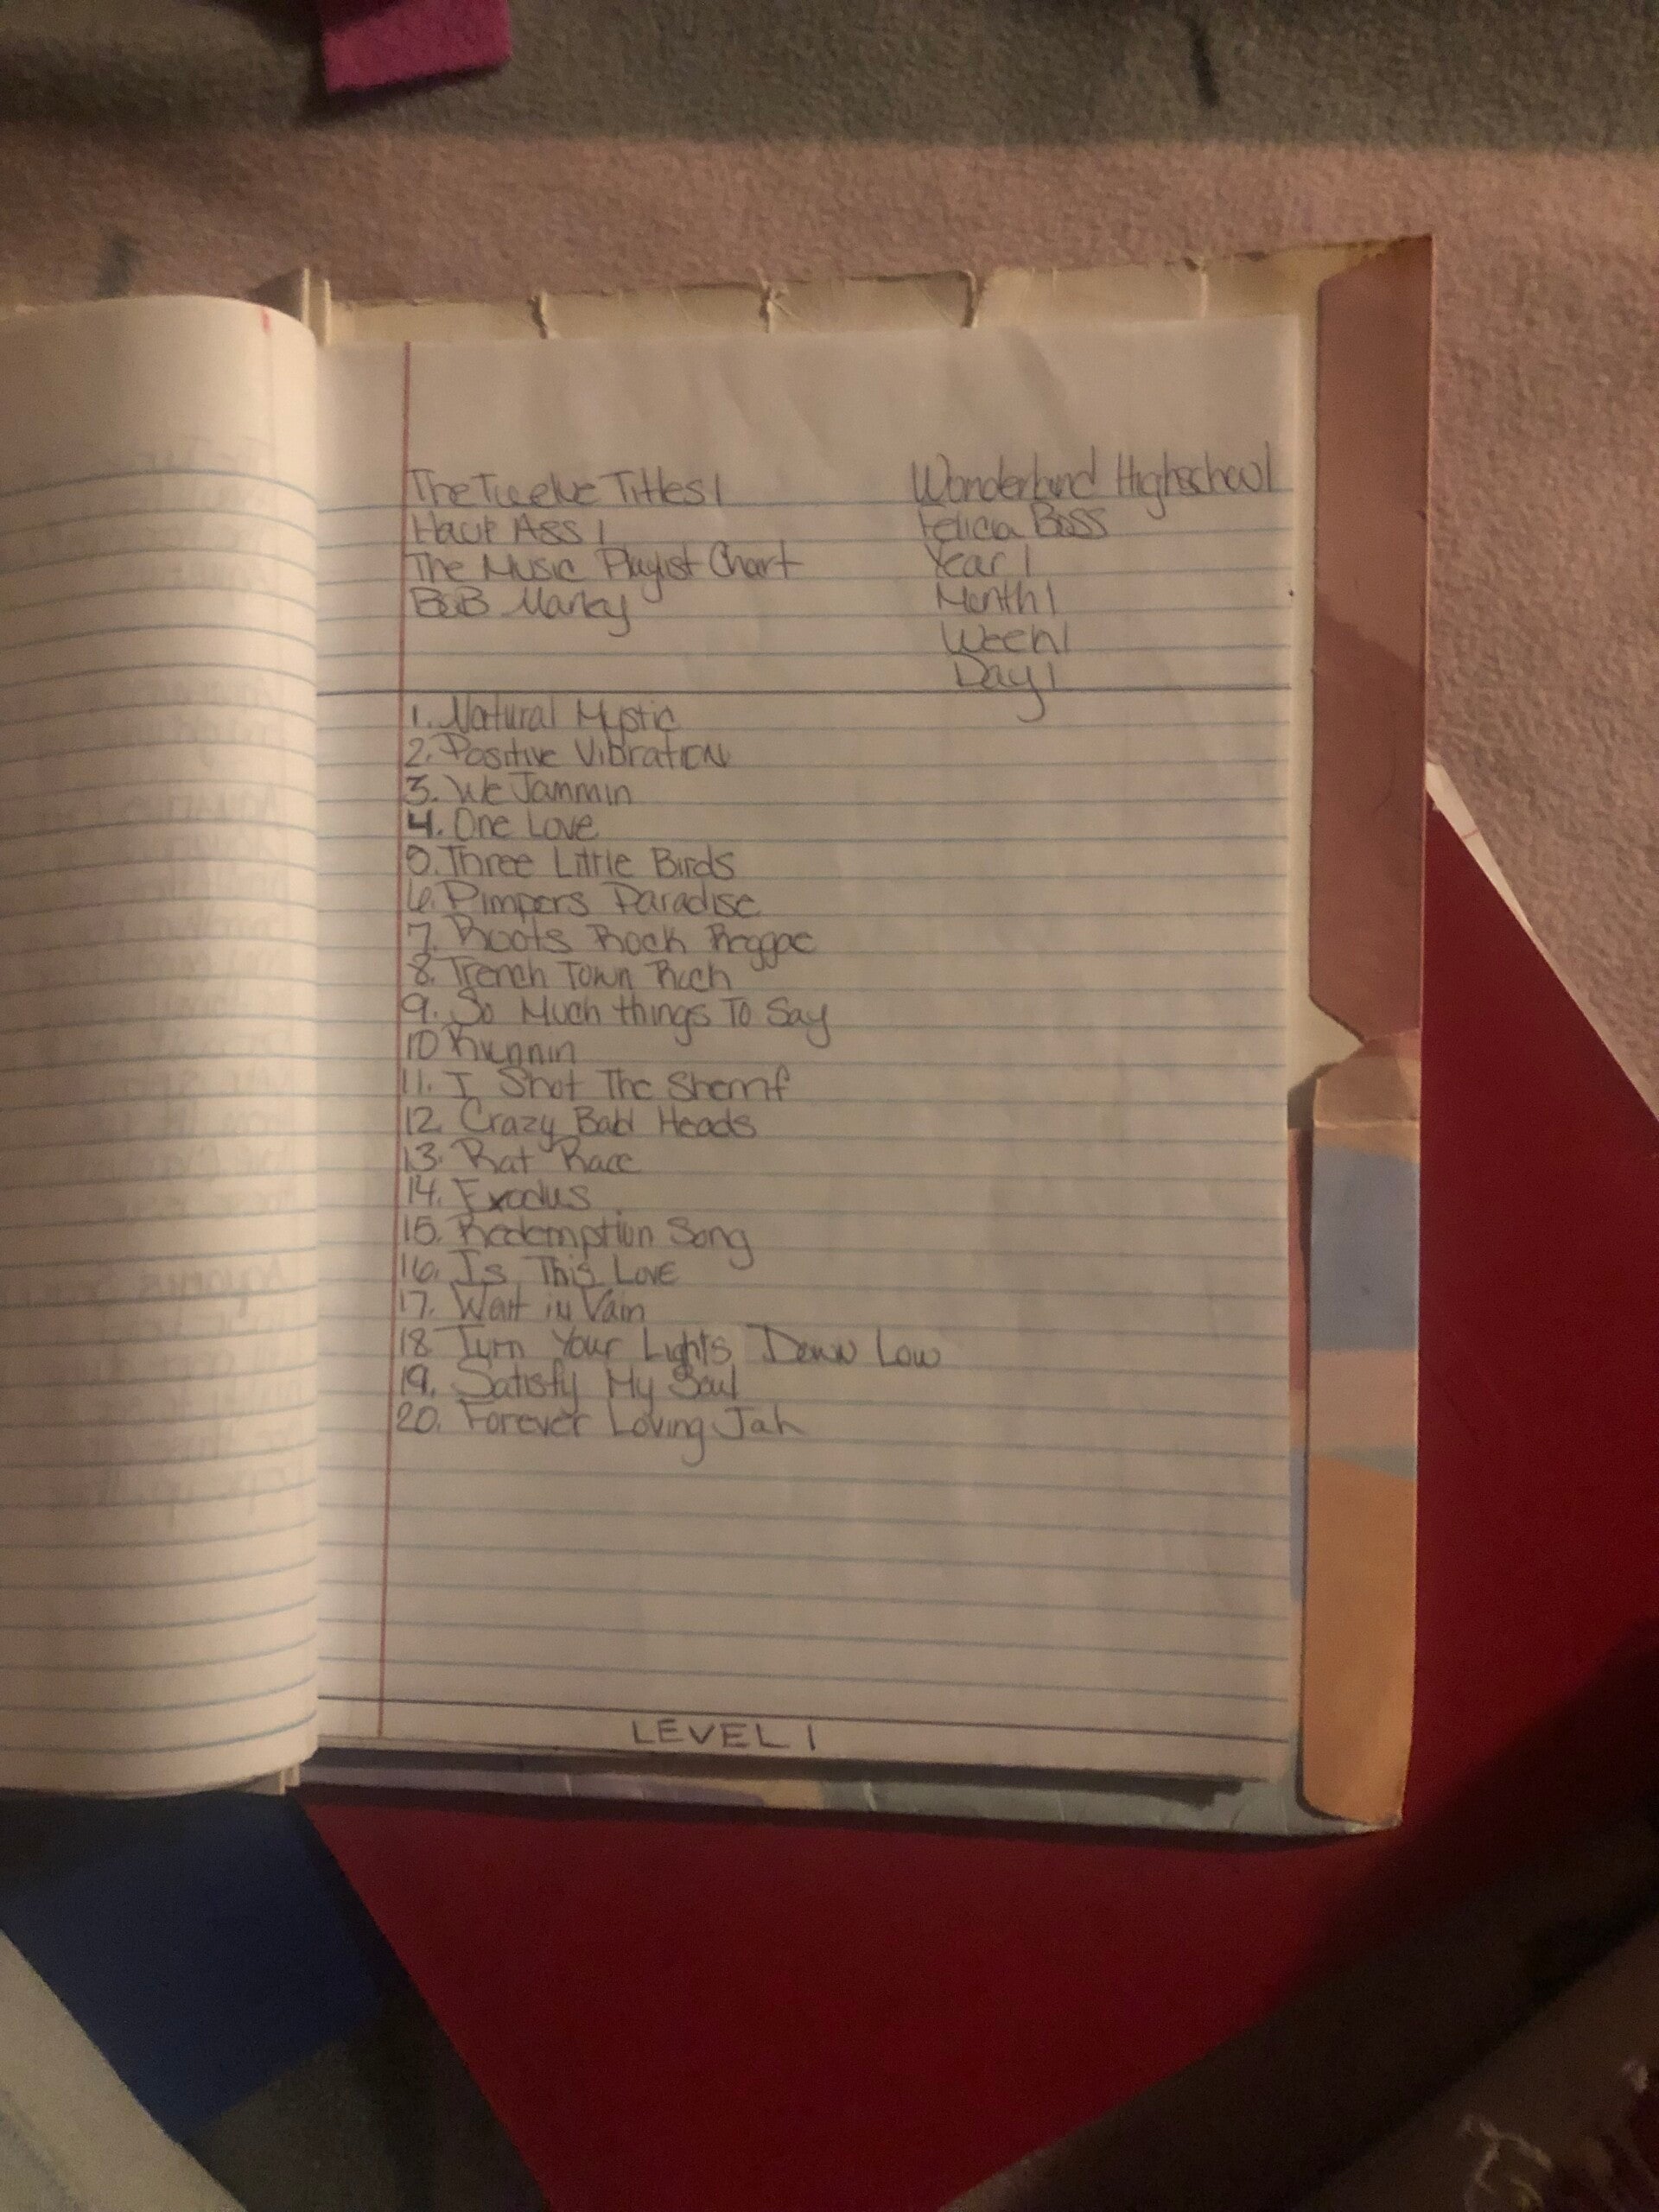 The Twelve Titles 1
Haut Ass 1
The Music Playist Chart
BOB Marley
Wonderland Highschool
Felicia Bass
Year 1
Month 1
Week 1
Day 1
1. Natural Mystic
2. Positive Vibration
3. We Jammin
4. One Love
5. Three Little Birds
6. Pimpers Paradise
7. Roots Rock Reggae
8. Trench Town Rock
9. So Much things To Say
10 Runnin
11. I Shot The Sherrif
12. Crazy Bald Heads
13. Rat Race
14. Exodus
15. Redemption Song
16. Is This Love
17. Wait in Vain
18 Turn Your Lights Down Low
19. Satisfy My Soul
20. Forever Loving Jah
LEVEL 1